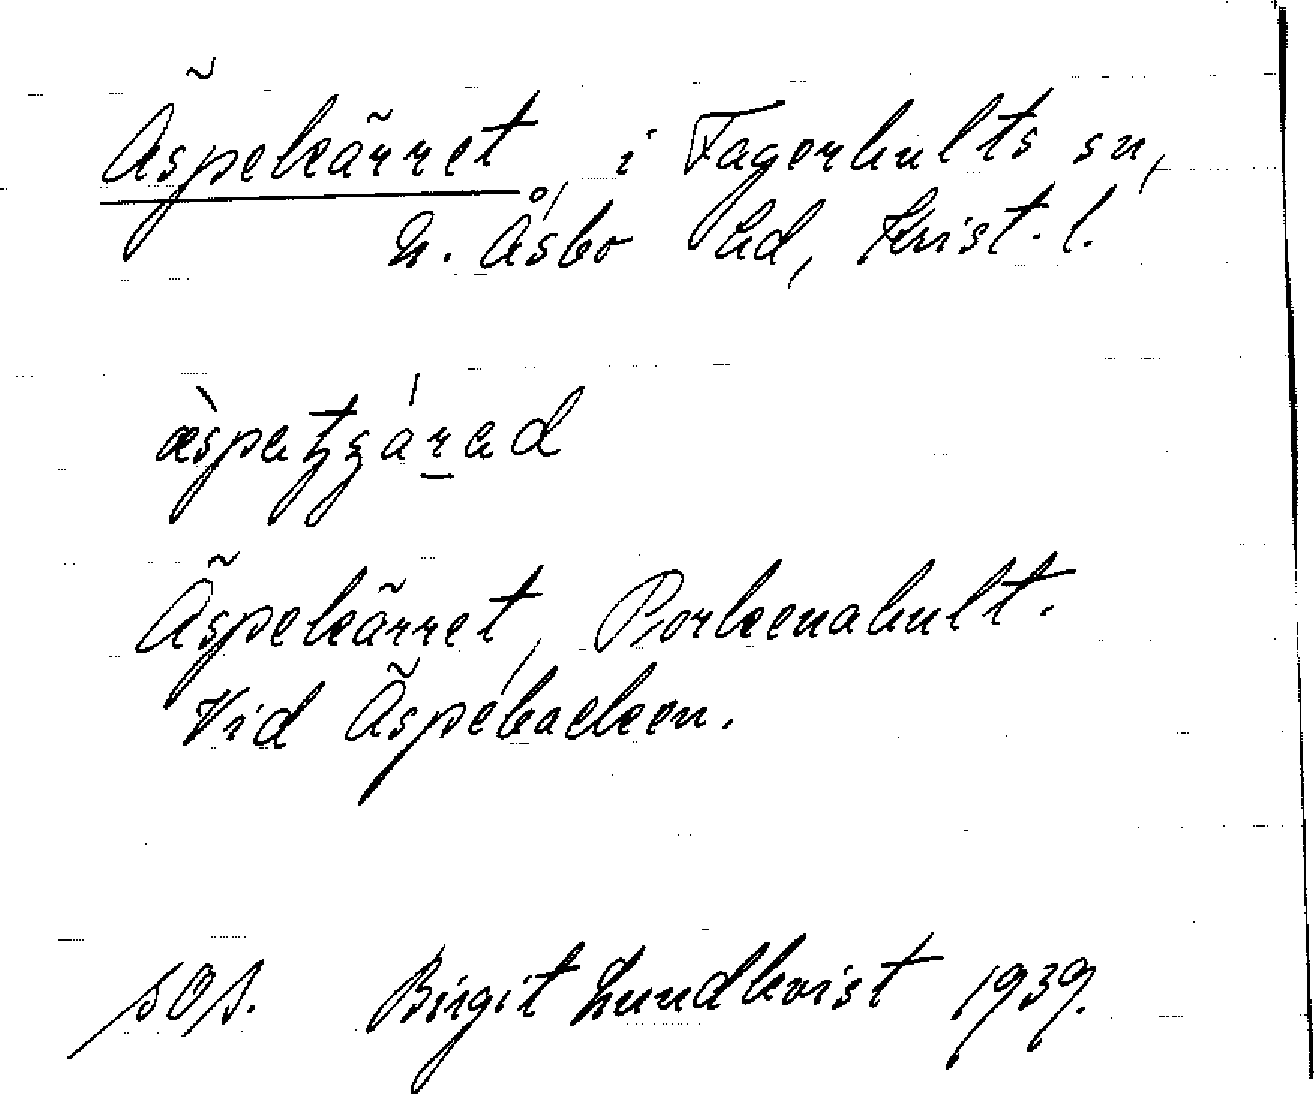 Äspekärret, i Fagerhults sn,
N. Åsbo hd, Krist. l.
Äspekärret, Porkenahult.
Vid Äspebacken.
sOs. Birgit Lundkvist 1939.